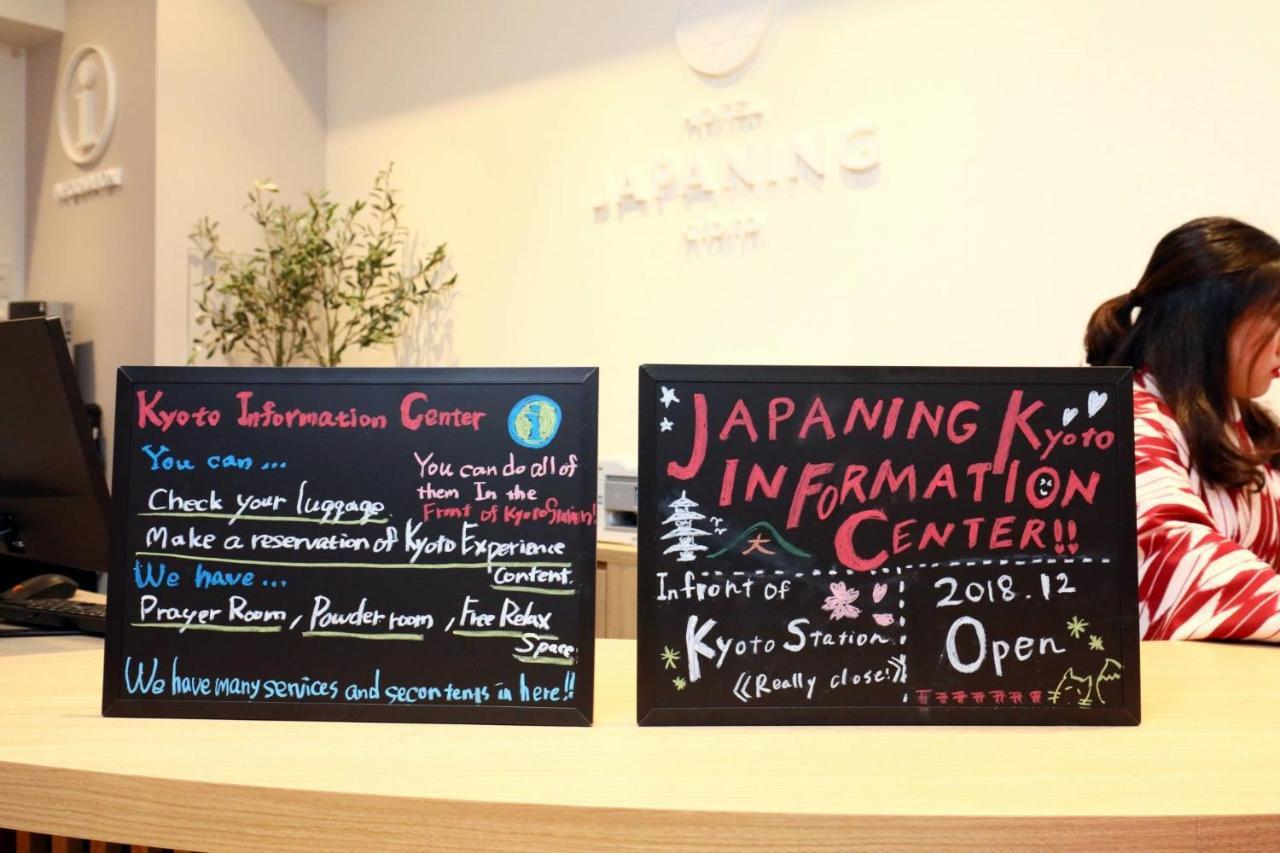 i
INFORMATION
HOTEL
JAPANING
KYOTO
Kyoto Information Center
i
You can ...
Check your luggage.
You can do all of
them In the
Front of Kyoto Station!
Make a reservation of Kyoto Experience
Content.
We have ...
Prayer Room, Powder room, Free Relax
Space.
We have many services and in here!!
JAPANING Kyoto
INFORMATION
CENTER!!
大
Infront of
Kyoto Station
《Really close!》
2018.12
Open